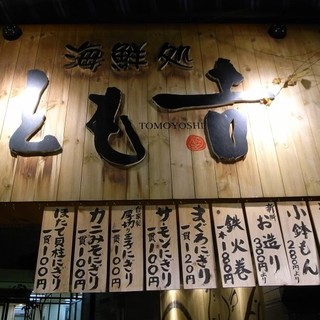 海鮮処
とも吉
TOMOYOSHI
小鉢もん
280円より
お造り
300円より
鉄火巻
一本180円
まぐろにぎり
一貫120円
サーモンにぎり
一貫100円
厚切り玉にぎり
一貫100円
カニみそにぎり
一貫100円
ほたて貝柱にぎり
一貫100円